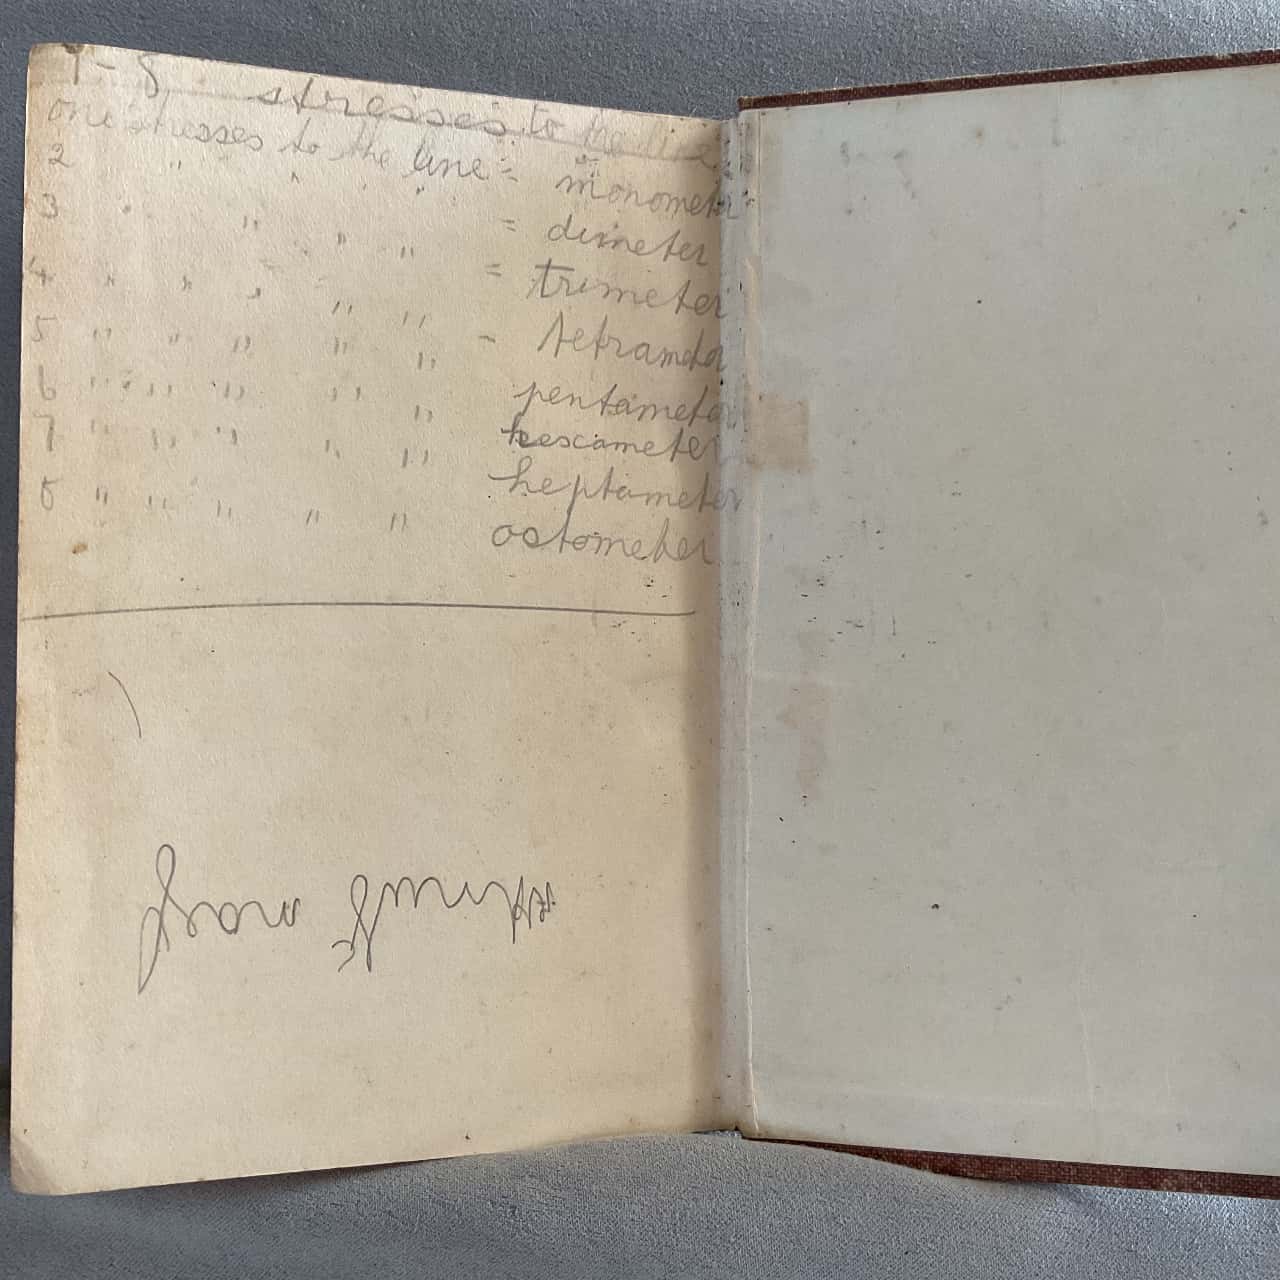 1-8 stresses to the line
one stresses to the line = monometer
2 " " " " = dimeter
3 " " " " = trimeter
4 " " " " " - tetrameter
5 " " " " " pentameter
6 " " " " " hexcameter
7 " " " " " heptameter
8 " " " " " octometer